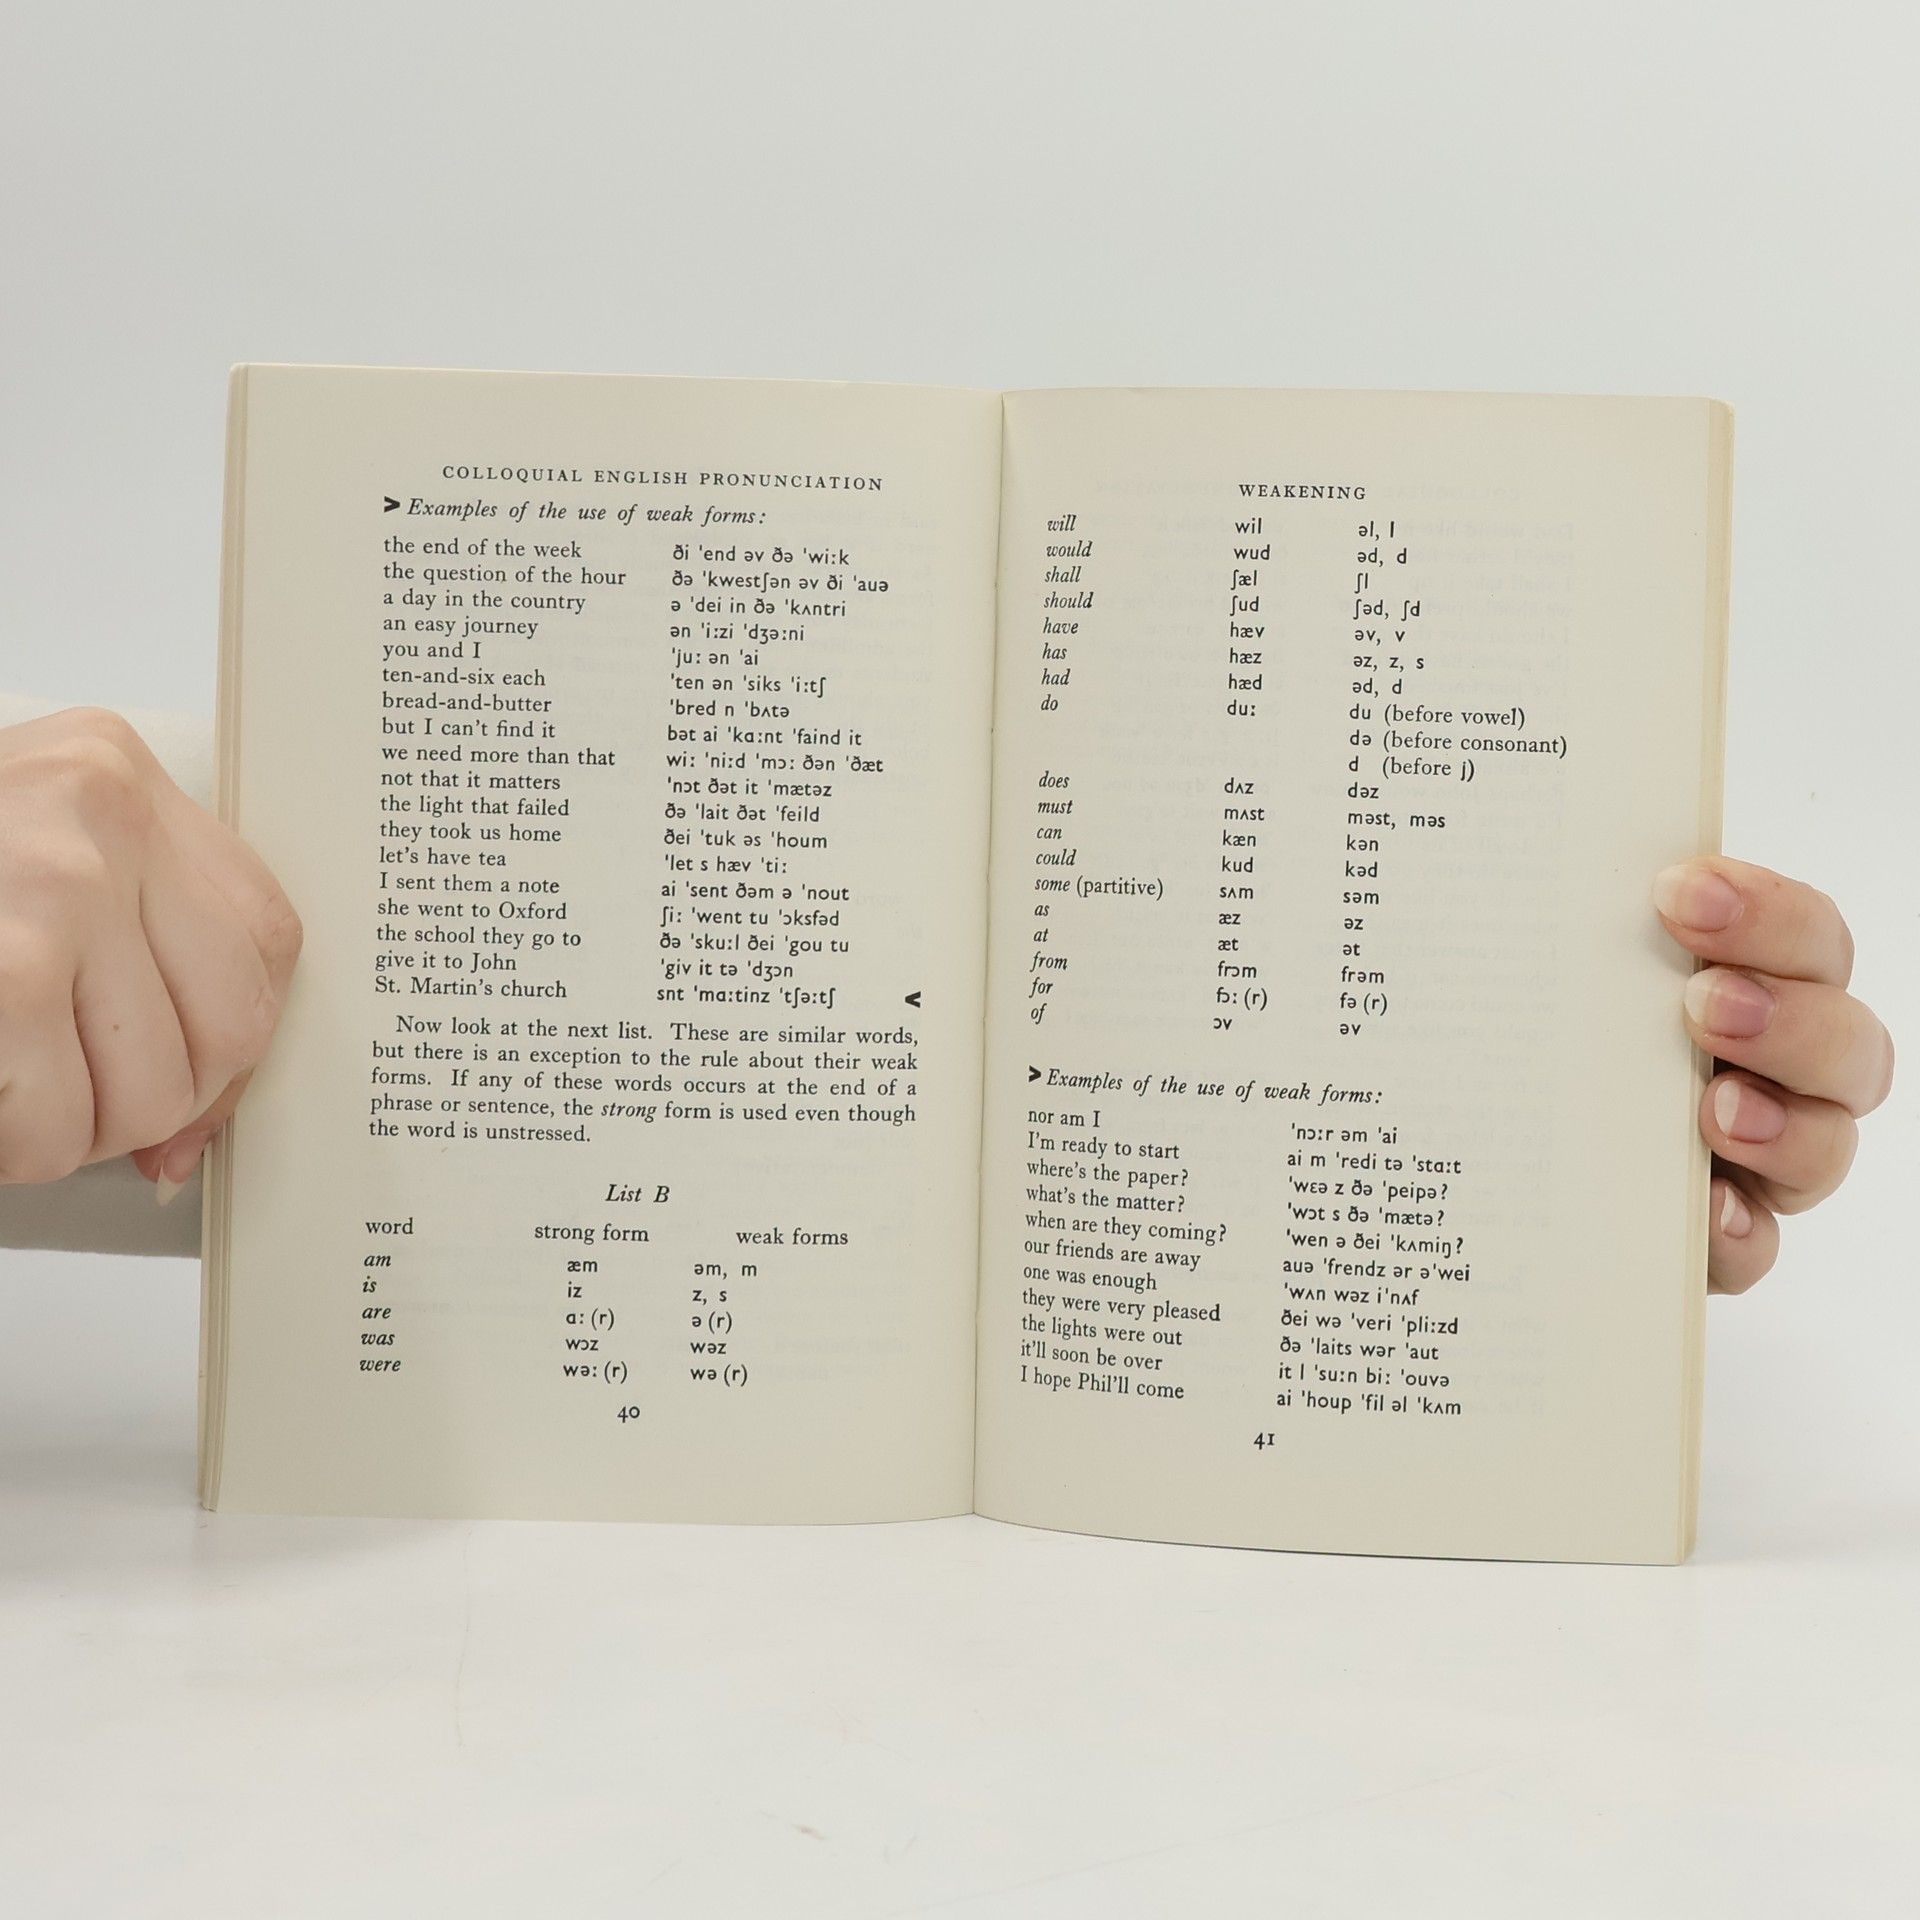 COLLOQUIAL ENGLISH PRONUNCIATION
> Examples of the use of weak forms:
the end of the week ði ˈend əv ðə ˈwiːk
the question of the hour ðə ˈkwestʃən əv ði ˈauə
a day in the country ə ˈdei in ðə ˈkʌntri
an easy journey ən ˈiːzi ˈdʒəːni
you and I ˈjuː ən ˈai
ten-and-six each ˈten ən ˈsiks ˈiːtʃ
bread-and-butter ˈbred n ˈbʌtə
but I can't find it bət ai ˈkɑːnt ˈfaind it
we need more than that wiː ˈniːd ˈmɔː ðən ˈðæt
not that it matters ˈnɔt ðət it ˈmætəz
the light that failed ðə ˈlait ðət ˈfeild
they took us home ðei ˈtuk əs ˈhoum
let's have tea ˈlet s hæv ˈtiː
I sent them a note ai ˈsent ðəm ə ˈnout
she went to Oxford ʃiː ˈwent tu ˈɔksfəd
the school they go to ðə ˈskuːl ðei ˈgou tu
give it to John ˈgiv it tə ˈdʒɔn
St. Martin's church snt ˈmɑːtinz ˈtʃəːtʃ <
Now look at the next list. These are similar words,
but there is an exception to the rule about their weak
forms. If any of these words occurs at the end of a
phrase or sentence, the strong form is used even though
the word is unstressed.
List B
word strong form weak forms
am æm əm, m
is iz z, s
are ɑː (r) ə (r)
was wɔz wəz
were wəː (r) wə (r)
40
WEAKENING
will wil əl, l
would wud əd, d
shall ʃæl ʃl
should ʃud ʃəd, ʃd
have hæv əv, v
has hæz əz, z, s
had hæd əd, d
do duː du (before vowel)
də (before consonant)
d (before j)
does dʌz dəz
must mʌst məst, məs
can kæn kən
could kud kəd
some (partitive) sʌm səm
as æz əz
at æt ət
from frɔm frəm
for fɔː (r) fə (r)
of ɔv əv
> Examples of the use of weak forms:
nor am I ˈnɔːr əm ˈai
I'm ready to start ai m ˈredi tə ˈstɑːt
where's the paper? ˈwɛə z ðə ˈpeipə?
what's the matter? ˈwɔt s ðə ˈmætə?
when are they coming? ˈwen ə ðei ˈkʌmiŋ?
our friends are away auə ˈfrendz ər əˈwei
one was enough ˈwʌn wəz iˈnʌf
they were very pleased ðei wə ˈveri ˈpliːzd
the lights were out ðə ˈlaits wər ˈaut
it'll soon be over it l ˈsuːn biː ˈouvə
I hope Phil'll come ai ˈhoup ˈfil əl ˈkʌm
41